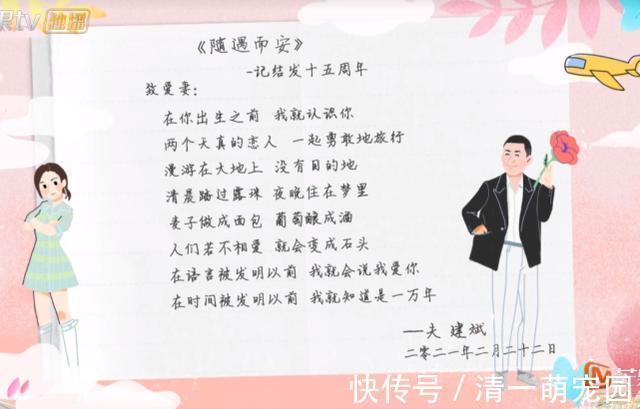 果tv 独播
《随遇而安》
-记结发十五周年
致爱妻:
在你出生之前 我就认识你
两个天真的恋人 一起勇敢地旅行
漫游在大地上 没有目的地
清晨踏过露珠 夜晚住在梦里
麦子做成面包 葡萄酿成酒
人们若不相爱 就会变成石头
在语言被发明以前 我就会说我爱你
在时间被发明以前 我就知道是一万年
——夫 建斌
二零二一年二月二十二日
快传号 / 清一萌宠园